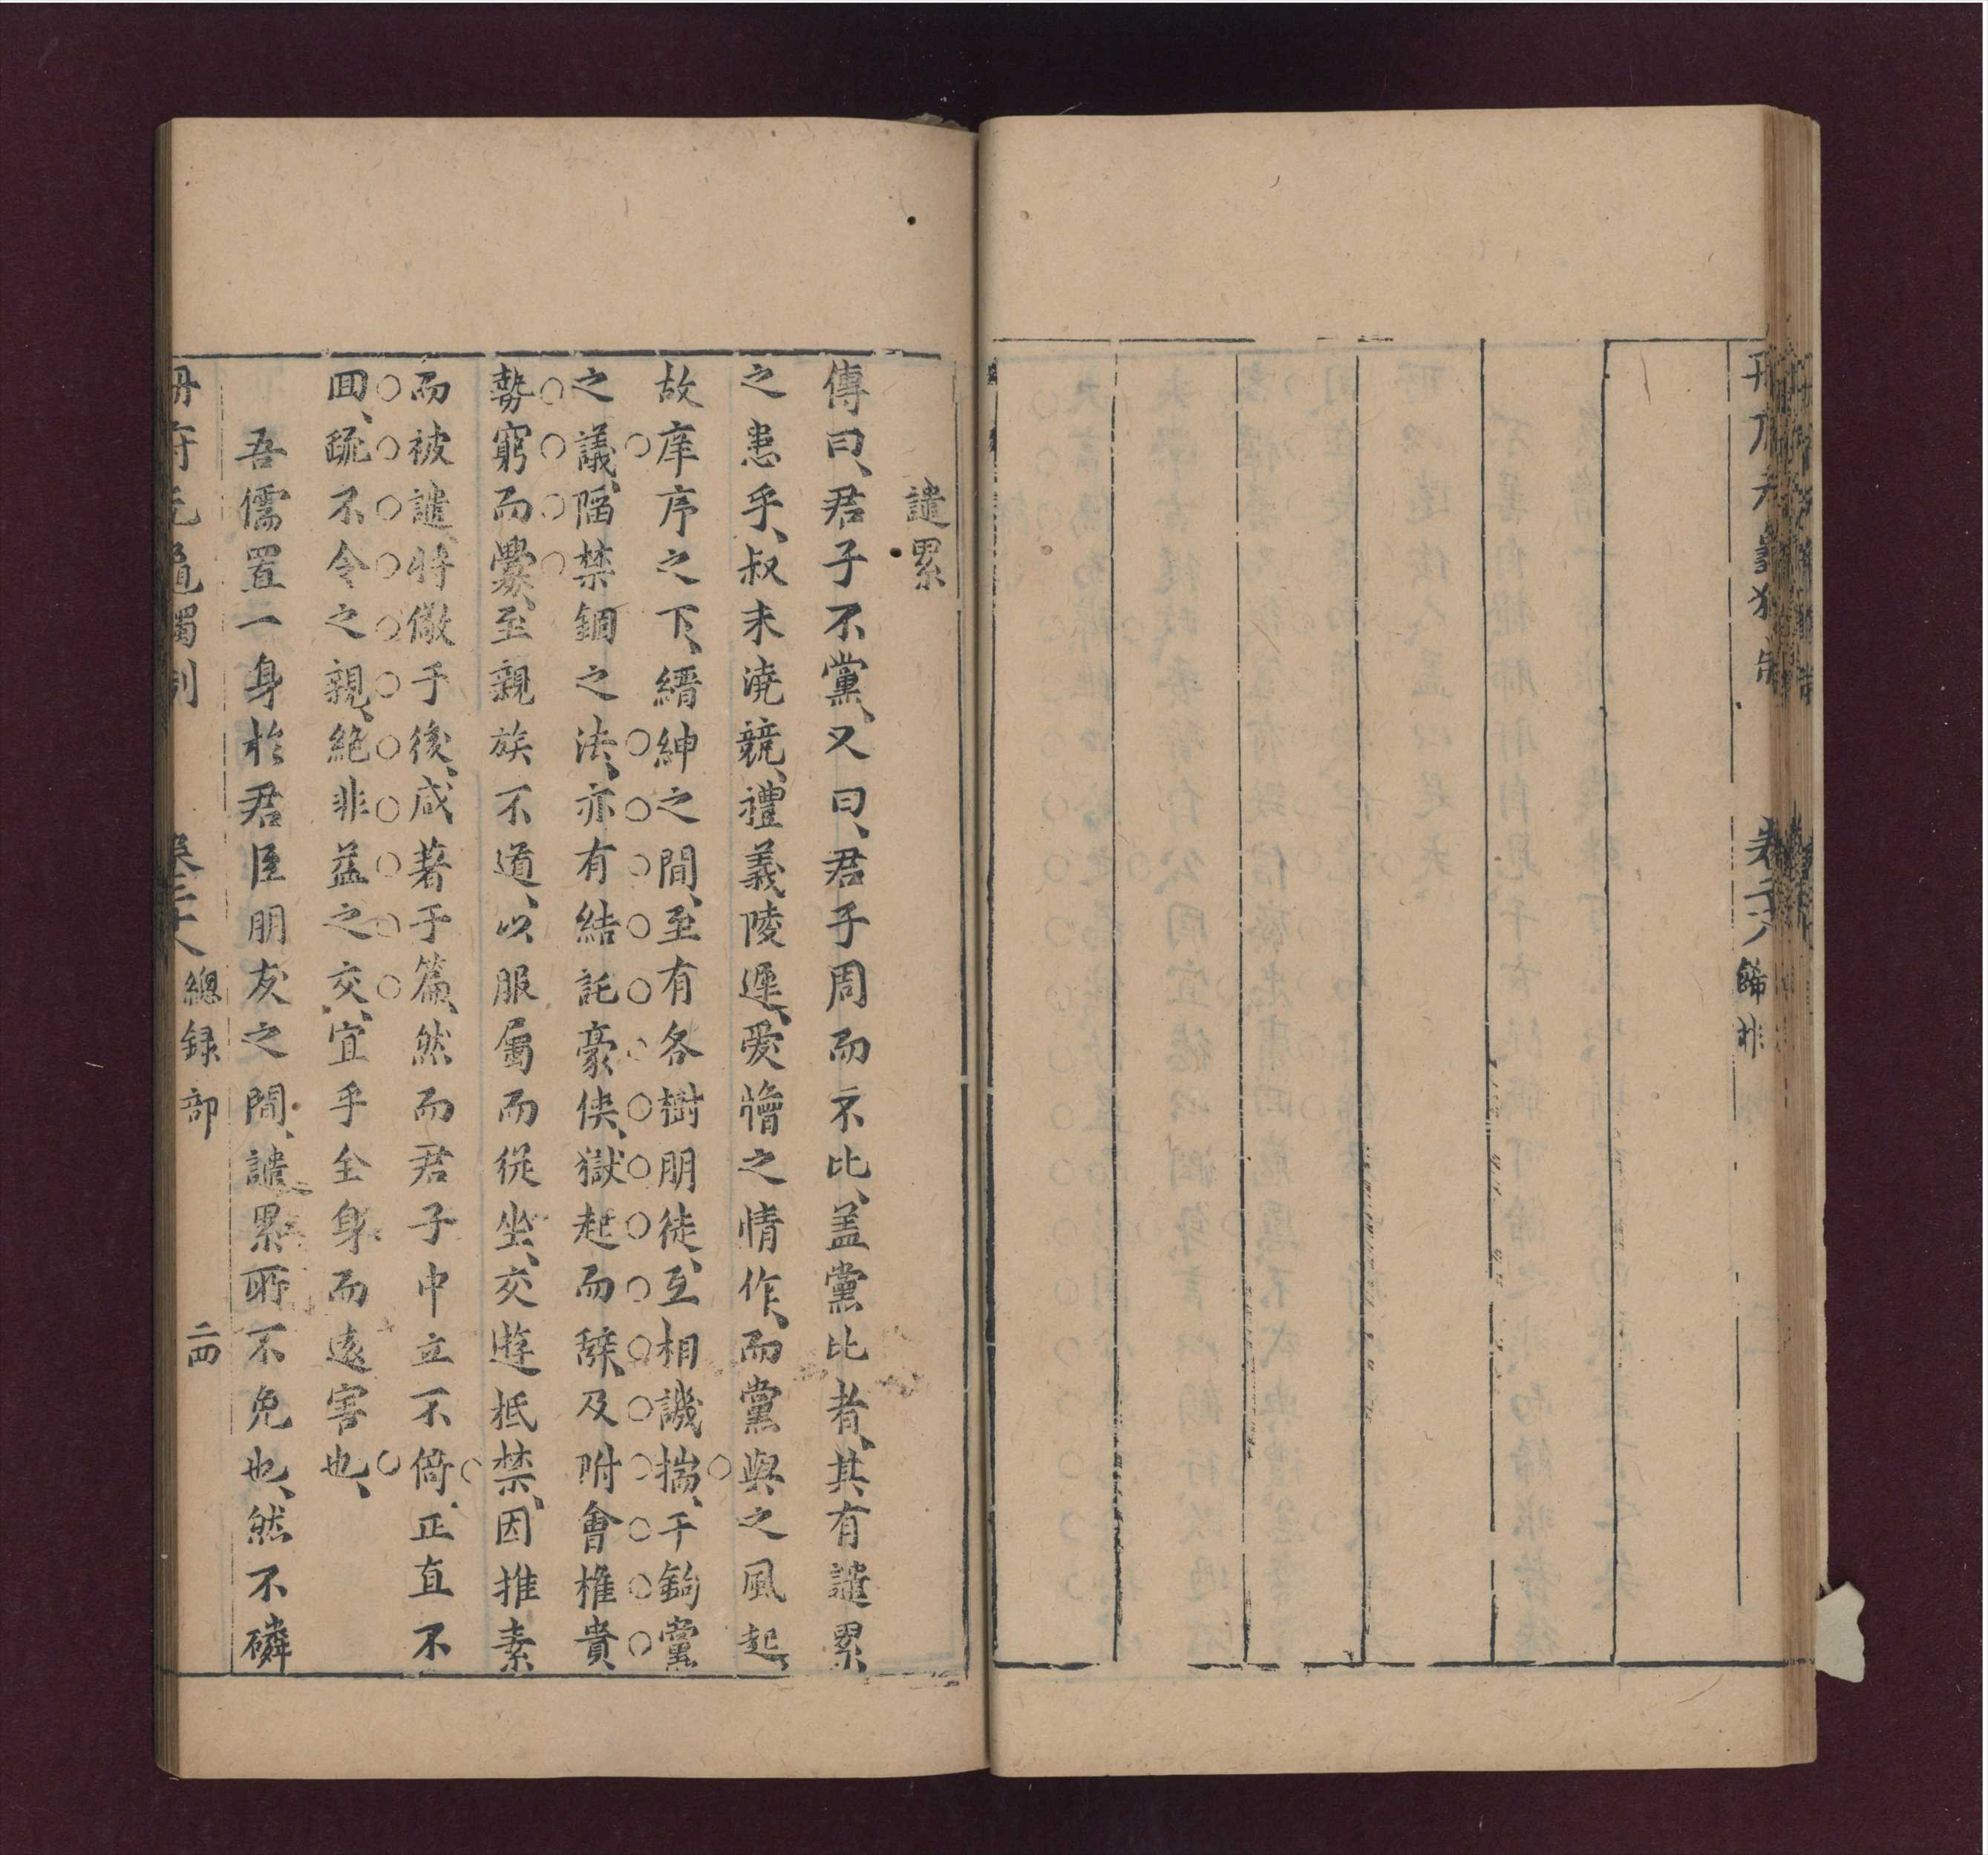 卷二十八
歸非
譴累
傳曰、君子不黨、又曰、君子周而不比、盖黨比者、其有譴累
之患乎、叔末澆競、禮義陵遲、愛憎之情作、而黨與之風起、
故庠序之下、縉紳之間、至有各樹朋徒、互相譏揣、于鉤黨
之議、陷禁錮之法、亦有結託豪俠、獄起而辭及附會權貴
勢窮而釁至親族不道、以服屬而從坐、交遊抵禁、因推素
而被譴、將儆于後、咸著于篇、然而君子中立不倚、正直不
回、疏不令之親、絶非益之交、宜乎全身而遠害也、
吾儒置一身於君臣朋友之間、譴累所不免也、然不磷
冊府元龜獨制
卷二十八
總録部
二四